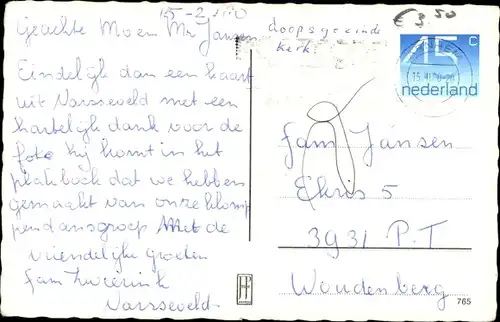 15-2
€ 3,50
doopsgezinde
kerk
Geachte M en Mr Jansen
Eindelijk dan een kaart
uit Varsseveld met een
hartelijk dank voor de
foto Hij komt in het
plakboek dat we hebben
gemaakt van onze klom
pendansgroep Met de
vriendelijke groeten
fam
Varsseveld
45 c
nederland
fam Jansen
Ekris 5
3931 P.T
Woudenberg
765